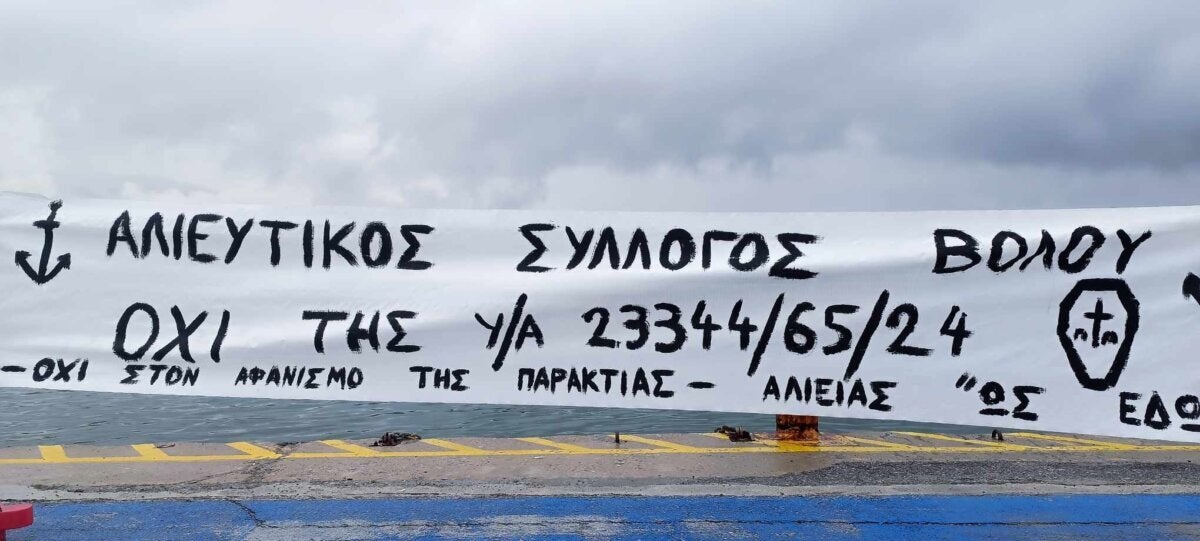 ΑΛΙΕΥΤΙΚΟΣ ΣΥΛΛΟΓΟΣ ΒΟΛΟΥ
ΟΧΙ ΤΗΣ Υ/Α 23344/65/24
-ΟΧΙ ΣΤΟΝ ΑΦΑΝΙΣΜΟ ΤΗΣ ΠΑΡΑΚΤΙΑΣ - ΑΛΙΕΙΑΣ "ΩΣ ΕΔΩ